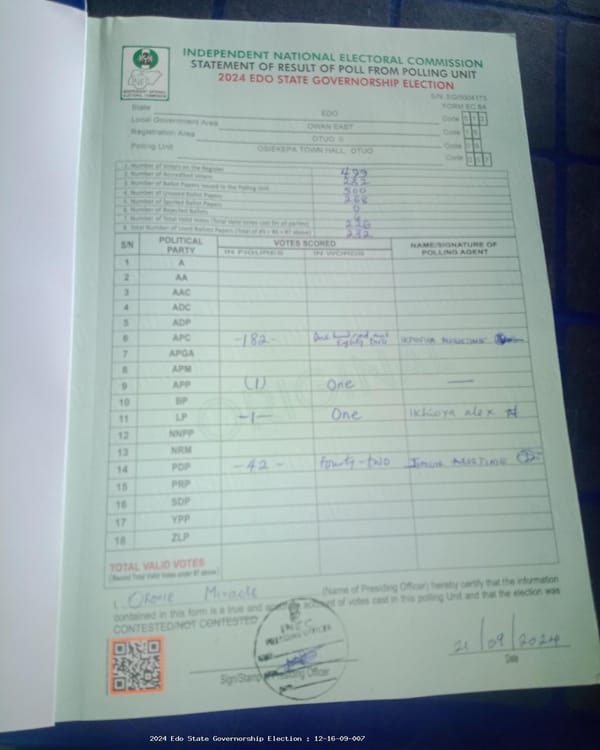 INDEPENDENT NATIONAL ELECTORAL COMMISSION
STATEMENT OF RESULT OF POLL FROM POLLING UNIT
2024 EDO STATE GOVERNORSHIP ELECTION
FORM EC 8A
State EDO Code
Local Government Area OWAN EAST Code
Registration Area OTUO II Code
Polling Unit OSIEKEPA TOWN HALL, OTUO Code
1. Number of Voters on the Register 499
2. Number of Accredited Voters
3. Number of Ballot Papers Issued to the Polling Unit 500
4. Number of Unused Ballot Papers 268
5. Number of Spoiled Ballot Papers 0
6. Number of Rejected Ballots
7. Number of Total Valid Votes (Total valid votes cast for all parties) 226
8. Total Number of Used Ballots Papers (Total of #5 + #6 + #7 above) 232
S/N POLITICAL PARTY VOTES SCORED NAME/SIGNATURE OF POLLING AGENT
IN FIGURES IN WORDS
1 A
2 AA
3 AAC
4 ADC
5 ADP
6 APC -182- One hundred and eighty two AUGUSTINE
7 APGA
8 APM
9 APP (1) One —
10 BP
11 LP -1- One Ikhioya alex
12 NNPP
13 NRM
14 PDP -42- Fourty-two
15 PRP
16 SDP
17 YPP
18 ZLP
TOTAL VALID VOTES
(Record Total Valid Votes under #7 above)
I, Okorie Miracle (Name of Presiding Officer) hereby certify that the information
contained in this form is a true and account of votes cast in this polling Unit and that the election was
CONTESTED/NOT CONTESTED
INEC
PRESIDING OFFICER
21/09/2024
Sign/Stamp Presiding Officer Date
2024 Edo State Governorship Election : 12-16-09-007